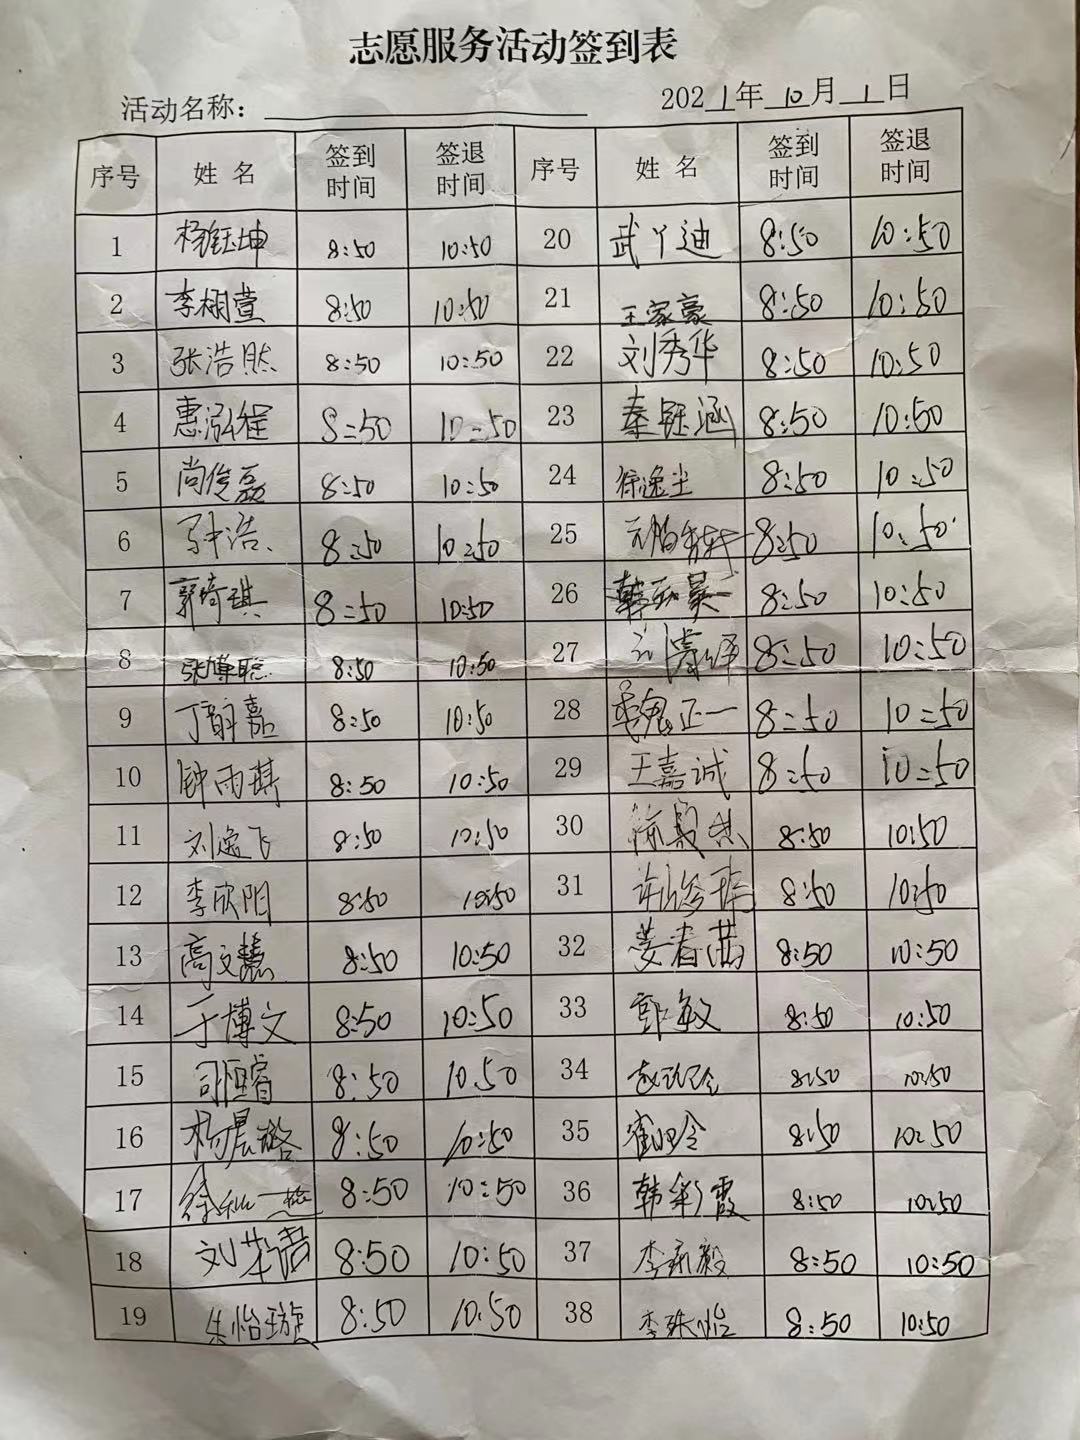 志愿服务活动签到表
活动名称：
2021年10月1日
序号 姓名 签到时间 签退时间 序号 姓名 签到时间 签退时间
1 杨钰坤 8:50 10:50 20 武丫迪 8:50 10:50
2 李栩萱 8:50 10:50 21 王家豪 8:50 10:50
3 张浩然 8:50 10:50 22 刘秀华 8:50 10:50
4 惠泓程 8:50 10:50 23 秦钰涵 8:50 10:50
5 尚俊磊 8:50 10:50 24 徐逸尘 8:50 10:50
6 浩 8:50 10:50 25 8:50 10:50
7 郭琦琪 8:50 10:50 26 韩 昊 8:50 10:50
8 张博聪 8:50 10:50 27 8:50 10:50
9 丁蔚嘉 8:50 10:50 28 魏正一 8:50 10:50
10 钟雨琪 8:50 10:50 29 王嘉诚 8:50 10:50
11 刘逸飞 8:50 10:50 30 8:50 10:50
12 李欣阳 8:50 10:50 31 8:50 10:50
13 高文慧 8:50 10:50 32 姜春茜 8:50 10:50
14 于博文 8:50 10:50 33 郭敏 8:50 10:50
15 司恒睿 8:50 10.50 34 赵玲 8:50 10:50
16 杨晨璐 8:50 10:50 35 崔 8:50 10:50
17 徐 8:50 10:50 36 韩彩霞 8:50 10:50
18 刘 8:50 10:50 37 李 毅 8:50 10:50
19 朱怡璇 8:50 10:50 38 李 怡 8:50 10:50